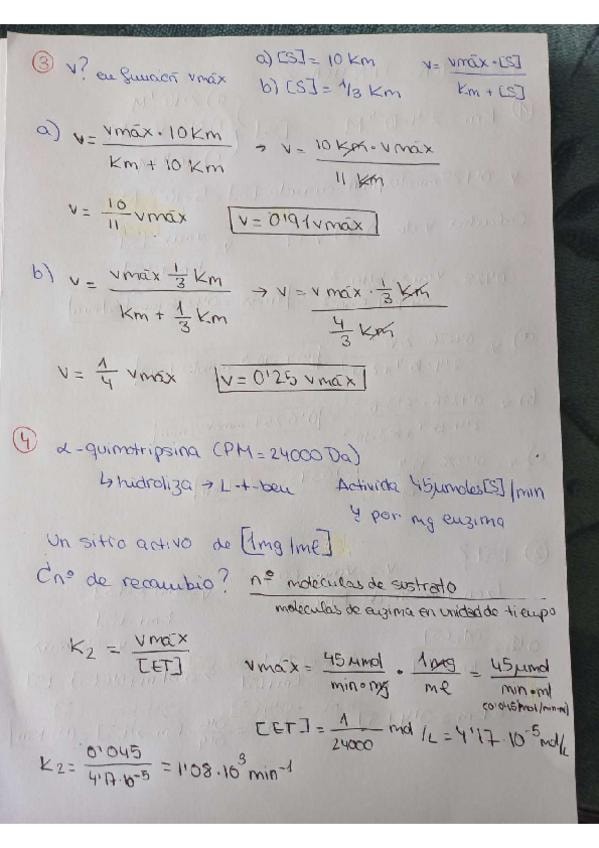 ③ v? en función vmáx a) [S] = 10 Km v = vmáx · [S] / Km + [S]
b) [S] = 1/3 Km
a) v = vmáx · 10 Km / Km + 10 Km → v = 10 Km · vmáx / 11 Km
v = 10/11 vmáx v = 0'91 vmáx
b) v = vmáx 1/3 Km / Km + 1/3 Km → v = vmáx · 1/3 Km / 4/3 Km
v = 1/4 vmáx v = 0'25 vmáx
④ α-quimotripsina (PM = 24000 Da)
↳ hidroliza → L-t-ben Activida 45 μmoles [S] / min
y por mg enzima
Un sitio activo de [1mg/ml]
¿nº de recambio? nº moléculas de sustrato / moléculas de enzima en unidad de tiempo
K2 = vmáx / [ET] vmáx = 45 μmol / min · mg · 1 mg / ml = 45 μmol / min · ml
(0'045 mol/min·ml)
[ET] = 1 / 24000 mol /L = 4'17 · 10⁻⁵ mol/L
K2 = 0'045 / 4'17 · 10⁻⁵ = 1'08 · 10³ min⁻¹